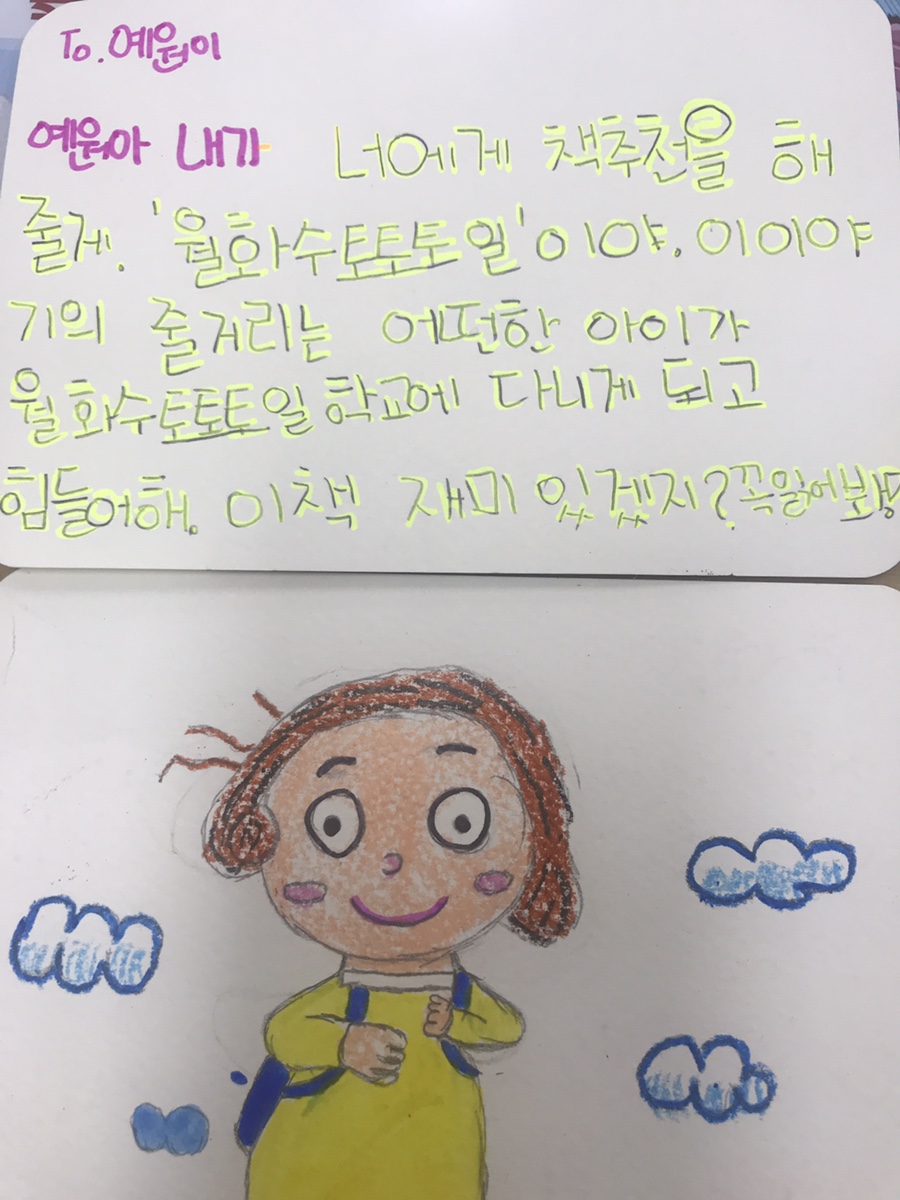 To. 예원이
예원아 내가 너에게 책추천을 해
줄게. '월화수토토토일'이야. 이이야
기의 줄거리는 어떤한 아이가
월화수토토토일 학교에 다니게 되고
힘들어해. 이책 재미 있겠지? 꼭읽어봐!